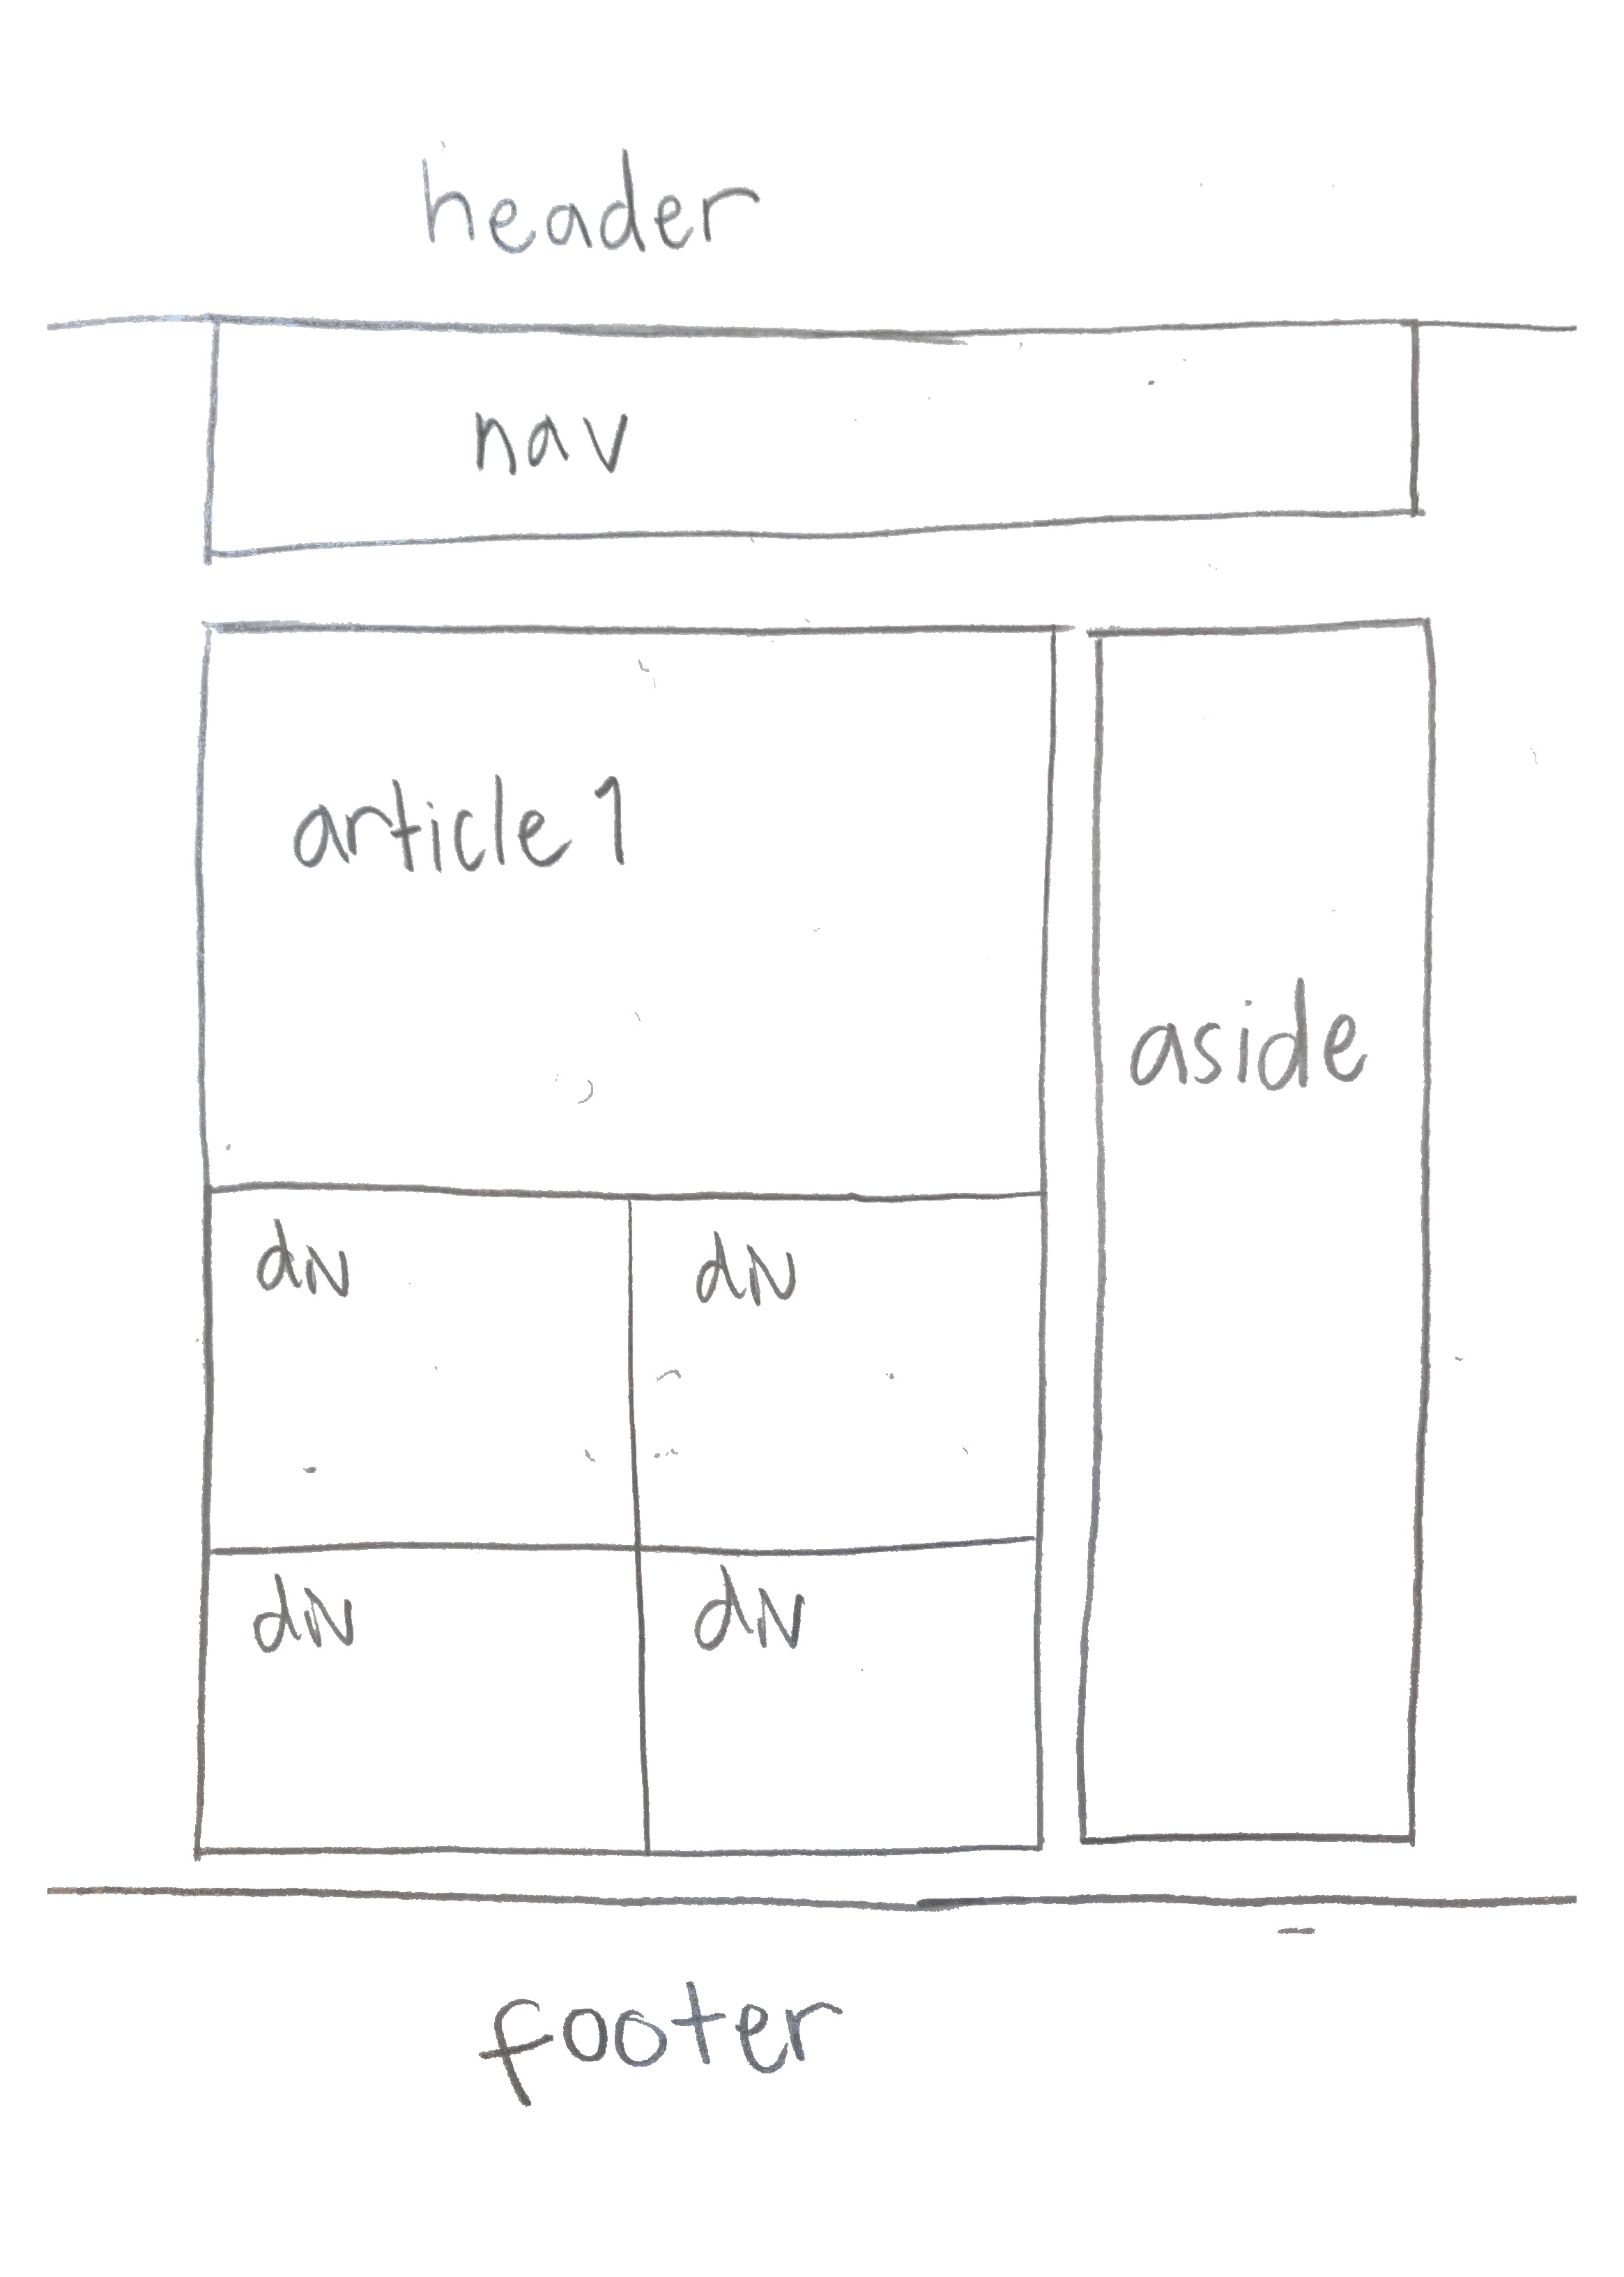 header
nav
article 1
aside
div
div
div
div
footer